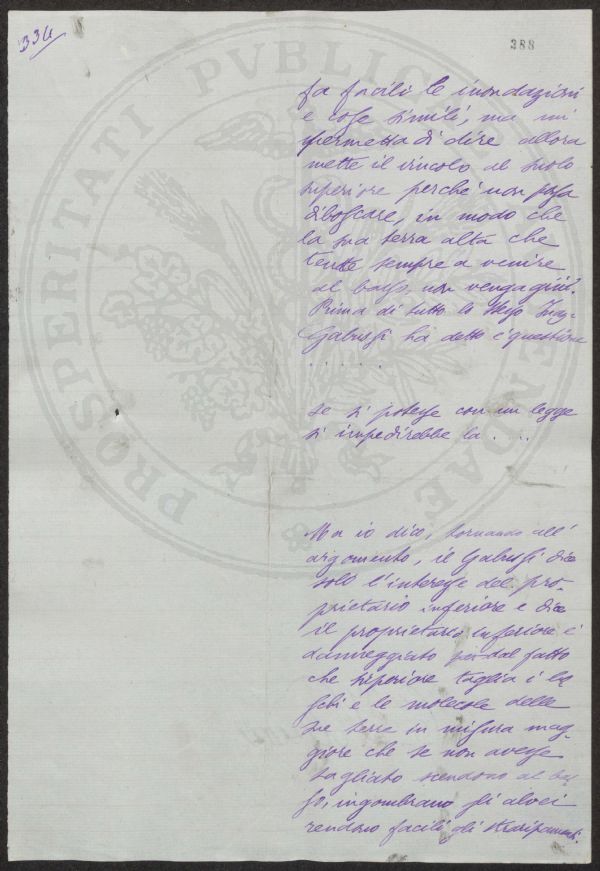 334
288
PROSPERITATI PVBLICAE
fa facili le inondazioni
e cose simili, ma mi
permetta di dire allora
mette il vincolo al suolo
superiore perché non possa
diboscare, in modo che
la sua terra alta che
tende sempre a venire
al basso non venga giù.
Prima di tutto lo stesso Ing.
Gabussi ha detto è questione
. . . . . .
se si potesse con un legge
si impedirebbe la . . . .
Ma io dico, tornando all'
argomento, il Gabussi dice
solo l'interesse del pro-
prietario inferiore e dice
il proprietario inferiore è
danneggiato dal fatto
che superiore taglia i bo
schi e le molecole delle
sue terre in misura mag-
giore che se non avesse
tagliato scendono al bas
so, ingombrano gli alvei
rendono facili gli straripamenti.